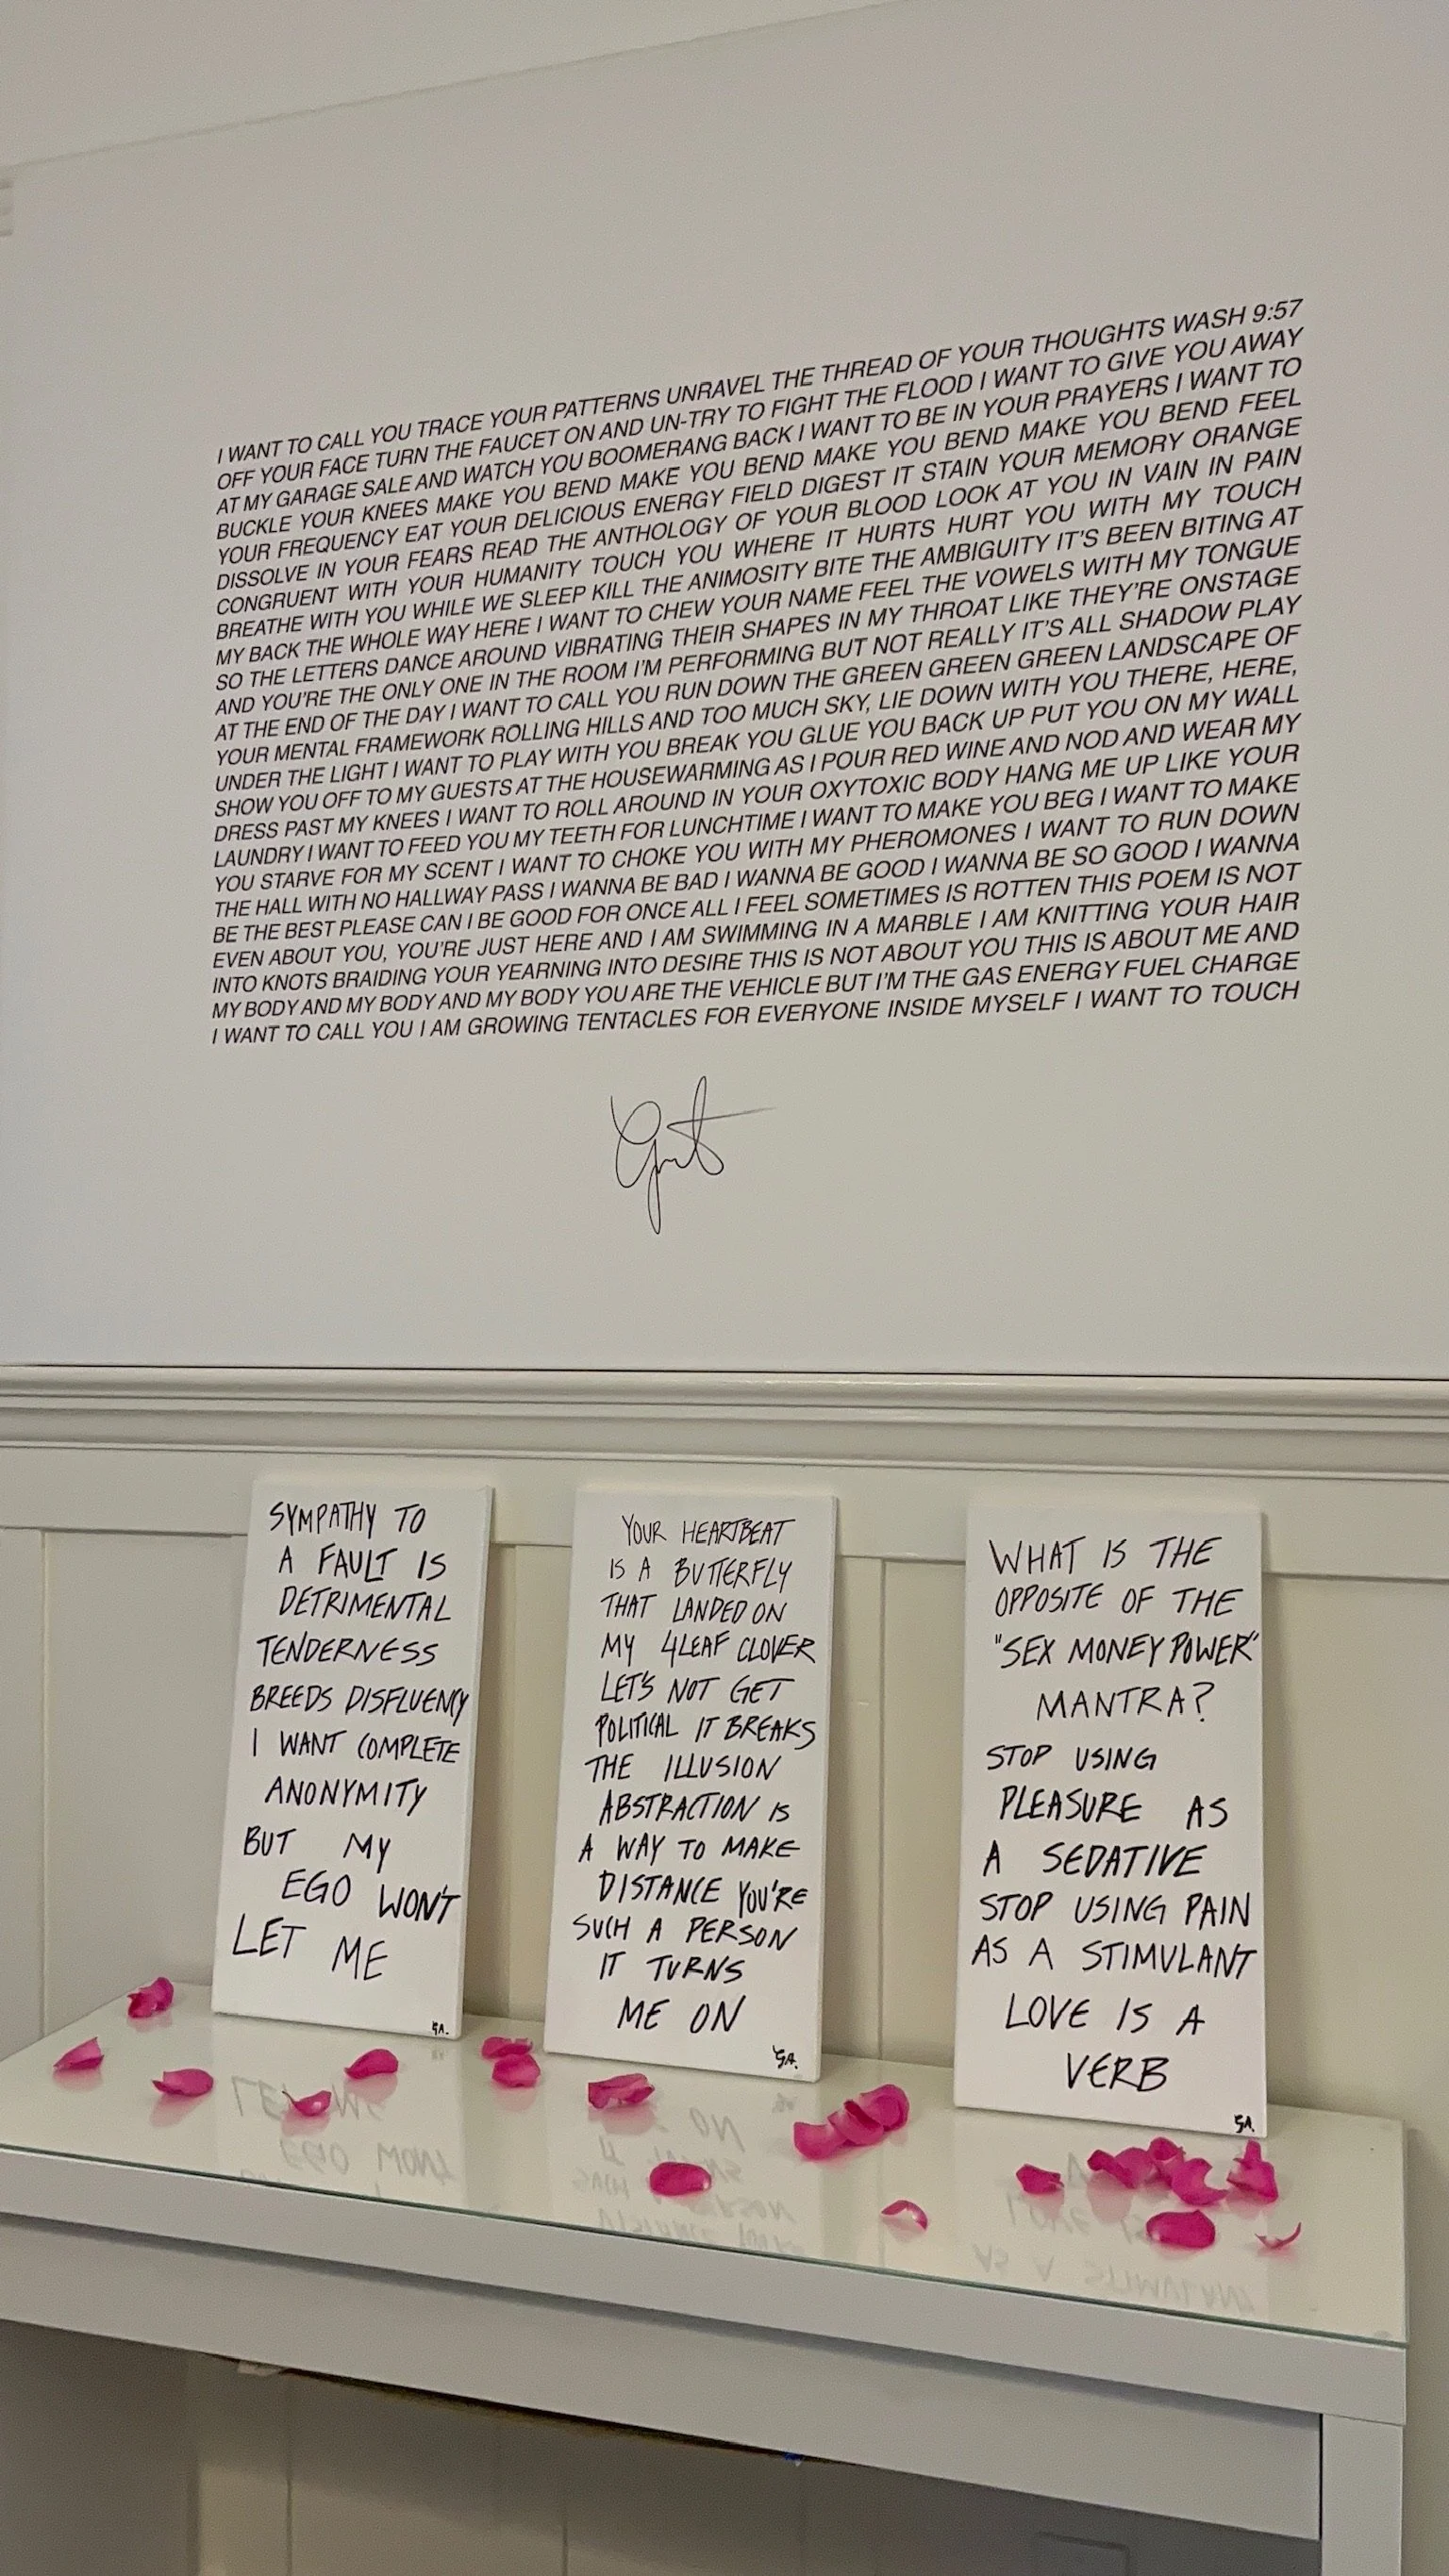 I WANT TO CALL YOU TRACE YOUR PATTERNS UNRAVEL THE THREAD OF YOUR THOUGHTS WASH 9:57
OFF YOUR FACE TURN THE FAUCET ON AND UN-TRY TO FIGHT THE FLOOD I WANT TO GIVE YOU AWAY
AT MY GARAGE SALE AND WATCH YOU BOOMERANG BACK I WANT TO BE IN YOUR PRAYERS I WANT TO
BUCKLE YOUR KNEES MAKE YOU BEND MAKE YOU BEND MAKE YOU BEND MAKE YOU BEND FEEL
YOUR FREQUENCY EAT YOUR DELICIOUS ENERGY FIELD DIGEST IT STAIN YOUR MEMORY ORANGE
DISSOLVE IN YOUR FEARS READ THE ANTHOLOGY OF YOUR BLOOD LOOK AT YOU IN VAIN IN PAIN
CONGRUENT WITH YOUR HUMANITY TOUCH YOU WHERE IT HURTS HURT YOU WITH MY TOUCH
BREATHE WITH YOU WHILE WE SLEEP KILL THE ANIMOSITY BITE THE AMBIGUITY IT'S BEEN BITING AT
MY BACK THE WHOLE WAY HERE I WANT TO CHEW YOUR NAME FEEL THE VOWELS WITH MY TONGUE
SO THE LETTERS DANCE AROUND VIBRATING THEIR SHAPES IN MY THROAT LIKE THEY'RE ONSTAGE
AND YOU'RE THE ONLY ONE IN THE ROOM I'M PERFORMING BUT NOT REALLY IT'S ALL SHADOW PLAY
AT THE END OF THE DAY I WANT TO CALL YOU RUN DOWN THE GREEN GREEN GREEN LANDSCAPE OF
YOUR MENTAL FRAMEWORK ROLLING HILLS AND TOO MUCH SKY, LIE DOWN WITH YOU THERE, HERE,
UNDER THE LIGHT I WANT TO PLAY WITH YOU BREAK YOU GLUE YOU BACK UP PUT YOU ON MY WALL
SHOW YOU OFF TO MY GUESTS AT THE HOUSEWARMING AS I POUR RED WINE AND NOD AND WEAR MY
DRESS PAST MY KNEES I WANT TO ROLL AROUND IN YOUR OXYTOXIC BODY HANG ME UP LIKE YOUR
LAUNDRY I WANT TO FEED YOU MY TEETH FOR LUNCHTIME I WANT TO MAKE YOU BEG I WANT TO MAKE
YOU STARVE FOR MY SCENT I WANT TO CHOKE YOU WITH MY PHEROMONES I WANT TO RUN DOWN
THE HALL WITH NO HALLWAY PASS I WANNA BE BAD I WANNA BE GOOD I WANNA BE SO GOOD I WANNA
BE THE BEST PLEASE CAN I BE GOOD FOR ONCE ALL I FEEL SOMETIMES IS ROTTEN THIS POEM IS NOT
EVEN ABOUT YOU, YOU'RE JUST HERE AND I AM SWIMMING IN A MARBLE I AM KNITTING YOUR HAIR
INTO KNOTS BRAIDING YOUR YEARNING INTO DESIRE THIS IS NOT ABOUT YOU THIS IS ABOUT ME AND
MY BODY AND MY BODY AND MY BODY YOU ARE THE VEHICLE BUT I'M THE GAS ENERGY FUEL CHARGE
I WANT TO CALL YOU I AM GROWING TENTACLES FOR EVERYONE INSIDE MYSELF I WANT TO TOUCH
SYMPATHY TO
A FAULT IS
DETRIMENTAL
TENDERNESS
BREEDS DISFLUENCY
I WANT COMPLETE
ANONYMITY
BUT MY
EGO WON'T
LET ME
G.A.
YOUR HEARTBEAT
IS A BUTTERFLY
THAT LANDED ON
MY 4LEAF CLOVER
LET'S NOT GET
POLITICAL IT BREAKS
THE ILLUSION
ABSTRACTION IS
A WAY TO MAKE
DISTANCE YOU'RE
SUCH A PERSON
IT TURNS
ME ON
G.A.
WHAT IS THE
OPPOSITE OF THE
"SEX MONEY POWER"
MANTRA?
STOP USING
PLEASURE AS
A SEDATIVE
STOP USING PAIN
AS A STIMULANT
LOVE IS A
VERB
G.A.